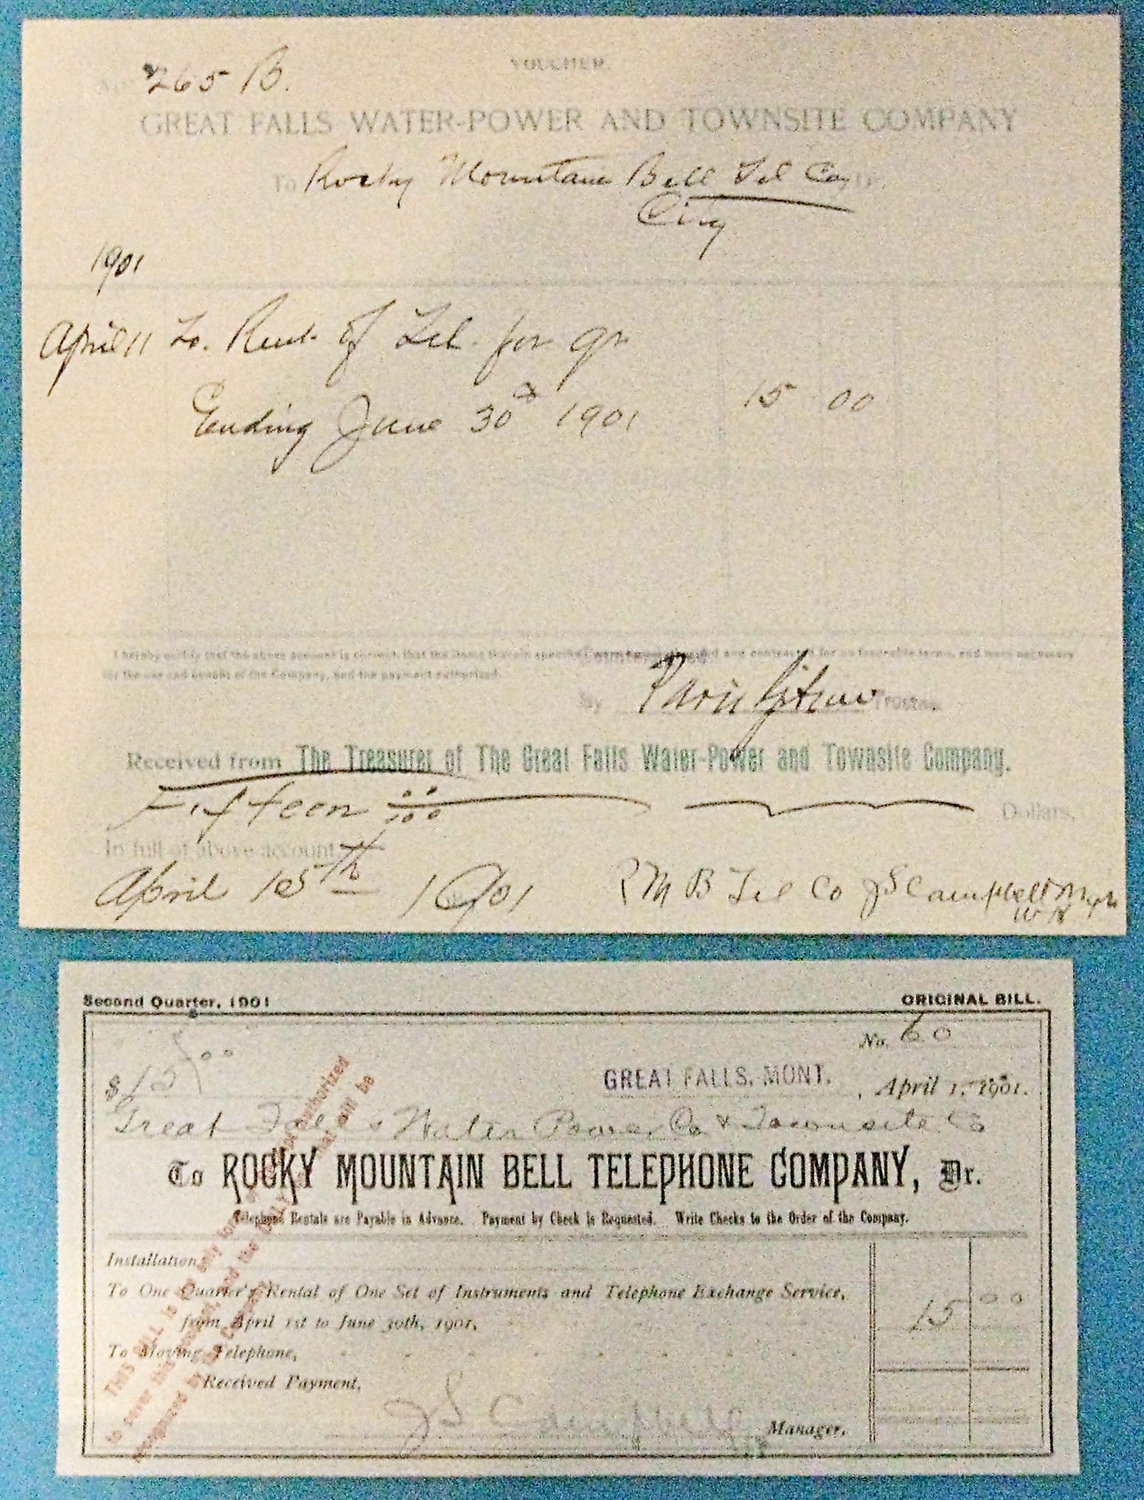 VOUCHER.
265 B.
GREAT FALLS WATER-POWER AND TOWNSITE COMPANY
To Rocky Mountain Bell Tel Coy Dr.
City
1901
April 11 To. Rent of Tel. for qr
Ending June 30th 1901 15 00
I hereby certify that the above account is correct, that the items therein specified were and contracted for on favorable terms, and were necessary
for the use and benefit of the Company, and the payment authorized.
Countersigned
By Paris Gibson Trustee.
Received from The Treasurer of The Great Falls Water-Power and Townsite Company.
Fifteen Dollars,
In full of above account
April 15th 1901 R M B Tel Co J S Campbell Mgr
Second Quarter, 1901 ORIGINAL BILL.
No. 60
$15 00 GREAT FALLS, MONT. , April 1, 1901.
Great Falls Water Power Co & Townsite Co
To ROCKY MOUNTAIN BELL TELEPHONE COMPANY, Dr.
Telephone Rentals are Payable in Advance. Payment by Check is Requested. Write Checks to the Order of the Company.
Installation,
To One Quarter's Rental of One Set of Instruments and Telephone Exchange Service,
from April 1st to June 30th, 1901, 15 00
To Moving Telephone,
Received Payment,
J S Campbell Manager.
THIS BILL is only authorized
to cover this and the ONLY that will be
recognized by the Company